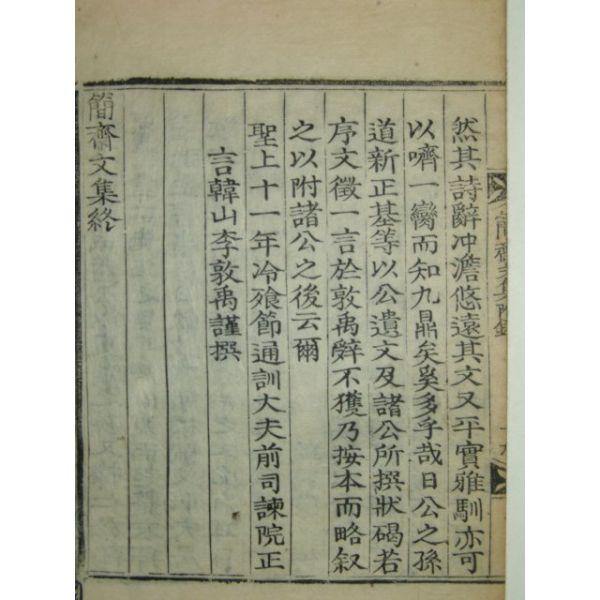 然其詩辭冲澹悠遠其文又平實雅馴亦可
以嚌一臠而知九鼎矣奚多乎哉日公之孫
道新正基等以公遺文及諸公所撰狀碣若
序文徵一言於敦禹辭不獲乃按本而略叙
之以附諸公之後云爾
聖上十一年冷飧節通訓大夫前司諫院正
言韓山李敦禹謹撰
簡齋文集終